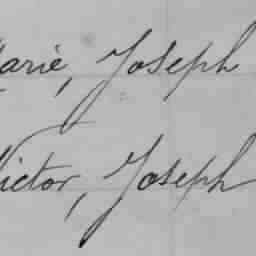 Marie, Joseph
Victor, Joseph